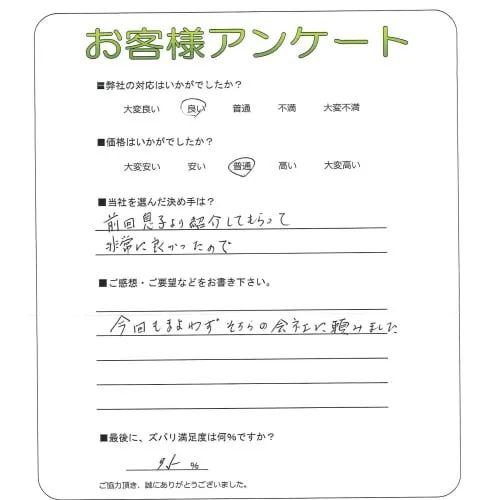 お客様アンケート
■弊社の対応はいかがでしたか？
大変良い 良い 普通 不満 大変不満
■価格はいかがでしたか？
大変安い 安い 普通 高い 大変高い
■当社を選んだ決め手は？
前回息子より紹介してもらって
非常に良かったので
■ご感想・ご要望などをお書き下さい。
今回もまよわずそちらの会社に頼みました
■最後に、ズバリ満足度は何％ですか？
％
ご協力頂き、誠にありがとうございました。